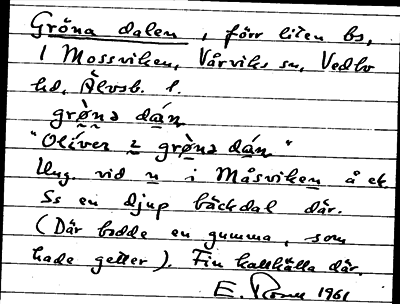 Gröna dalen, förr liten bs,
l Mossviken, Vårviks sn, Vedbo
hd, Älvsb. l.
grö̀nə dán
"Olíver i grö̀nə dán"
Ung. vid n i Måsviken å ek.
Ss en djup bäckdal där.
(Där bodde en gumma, som
hade getter). Fin kallkälla där.
E. 1961